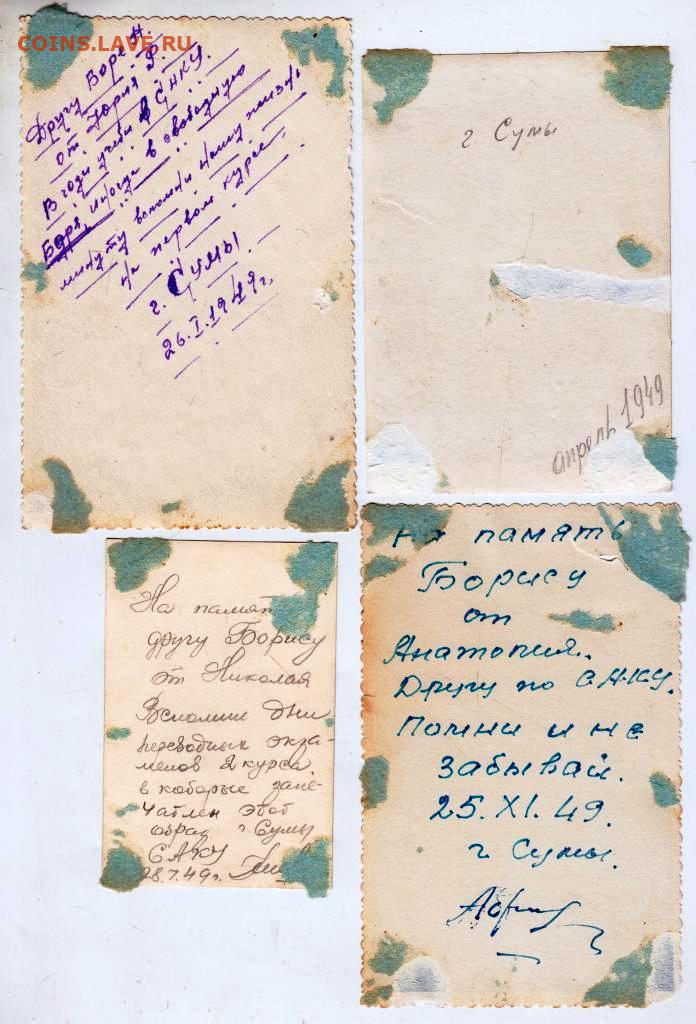 COINS.LAVE.RU
Другу Боре Н
от Юрия Я.
В годы учебы в САКУ.
Боря, иногда в свободную
минуту вспомни нашу жизнь
на первом курсе.
г. Сумы
26.I.1949г,
г Сумы
апрель 1949
На память
другу Борису
от Николая
Вспомни дни
переводных экза-
менов 2 курса
в которые запе-
чатлен этот
образ г. Сумы
САКУ
28.7.49г.
На память
Борису
от
Анатолия.
Другу по С.А.К.У.
Помни и не
забывай.
25.XI.49.
г Сумы.